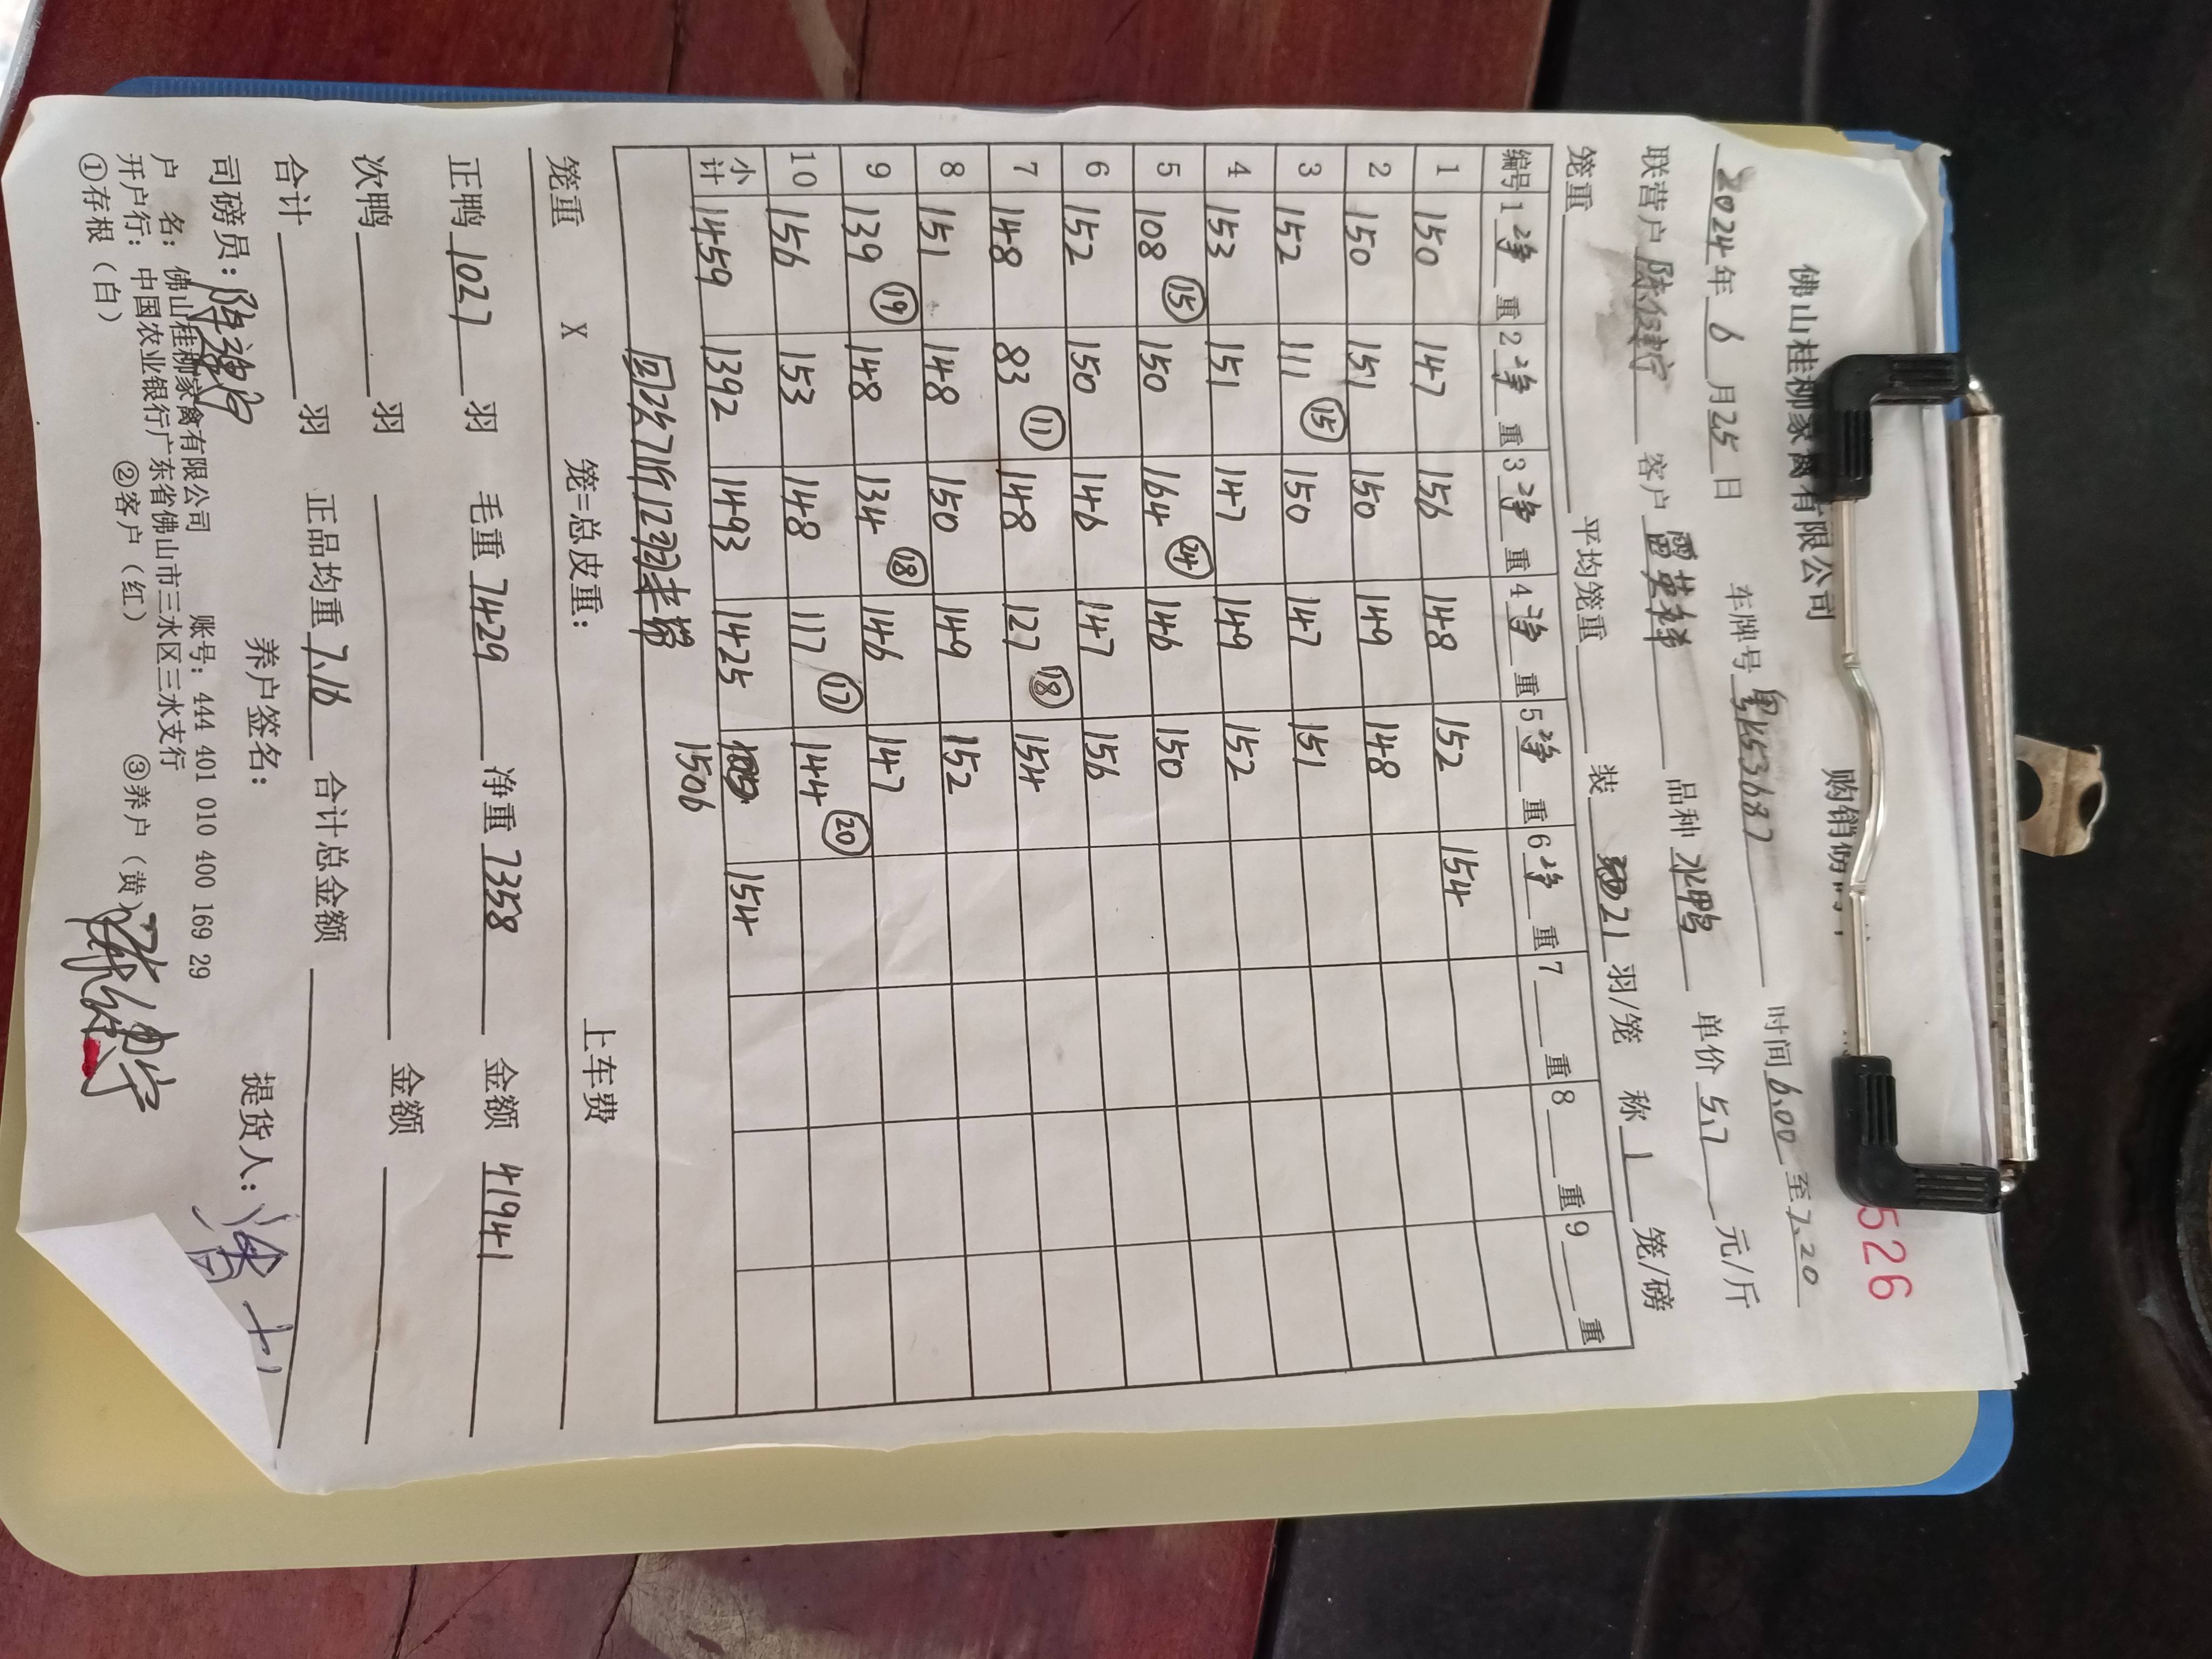 佛山桂柳家禽有限公司 购销
526
2024年6月25日 车牌号 粤K53687 时间 6.00 至 7.20
联营户 客户 雷英祥 品种 水鸭 单价 5.7 元/斤
笼重 平均笼重 装 21 羽/笼 称 1 笼/磅
编号 1 净 重 2 净 重 3 净 重 4 净 重 5 净 重 6 净 重 7 重 8 重 9 重
1 150 147 156 148 152 154
2 150 151 150 149 148
3 152 111 ⑮ 150 147 151
4 153 151 147 149 152
5 108 ⑮ 150 164 ㉔ 146 150
6 152 150 146 147 156
7 148 83 ⑪ 148 127 ⑱ 154
8 151 148 150 149 152
9 139 ⑲ 148 134 ⑱ 146 147
10 156 153 148 117 ⑰ 144 ⑳
小计 1459 1392 1493 1425 154
1506
笼重 X 笼=总皮重: 上车费
正鸭 1027 羽 毛重 7429 净重 7358 金额 41941
次鸭 羽 金额
合计 羽 正品均重 7.16 合计总金额
司磅员: 养户签名: 提货人:
户 名: 佛山桂柳家禽有限公司 账号: 444 401 010 400 169 29
开户行: 中国农业银行广东省佛山市三水区三水支行
①存根（白） ②客户（红） ③养户（黄）